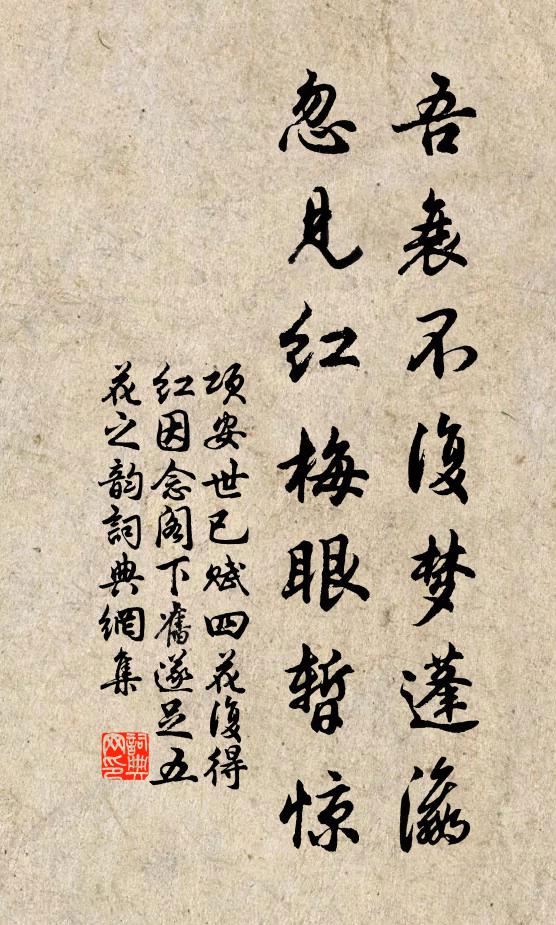 吾衰不復梦蓬瀛
忽見红梅眼暫惊
項安世已賦四花復得
红因念阁下舊遂足五
花之韵詞典網集
詞典网印